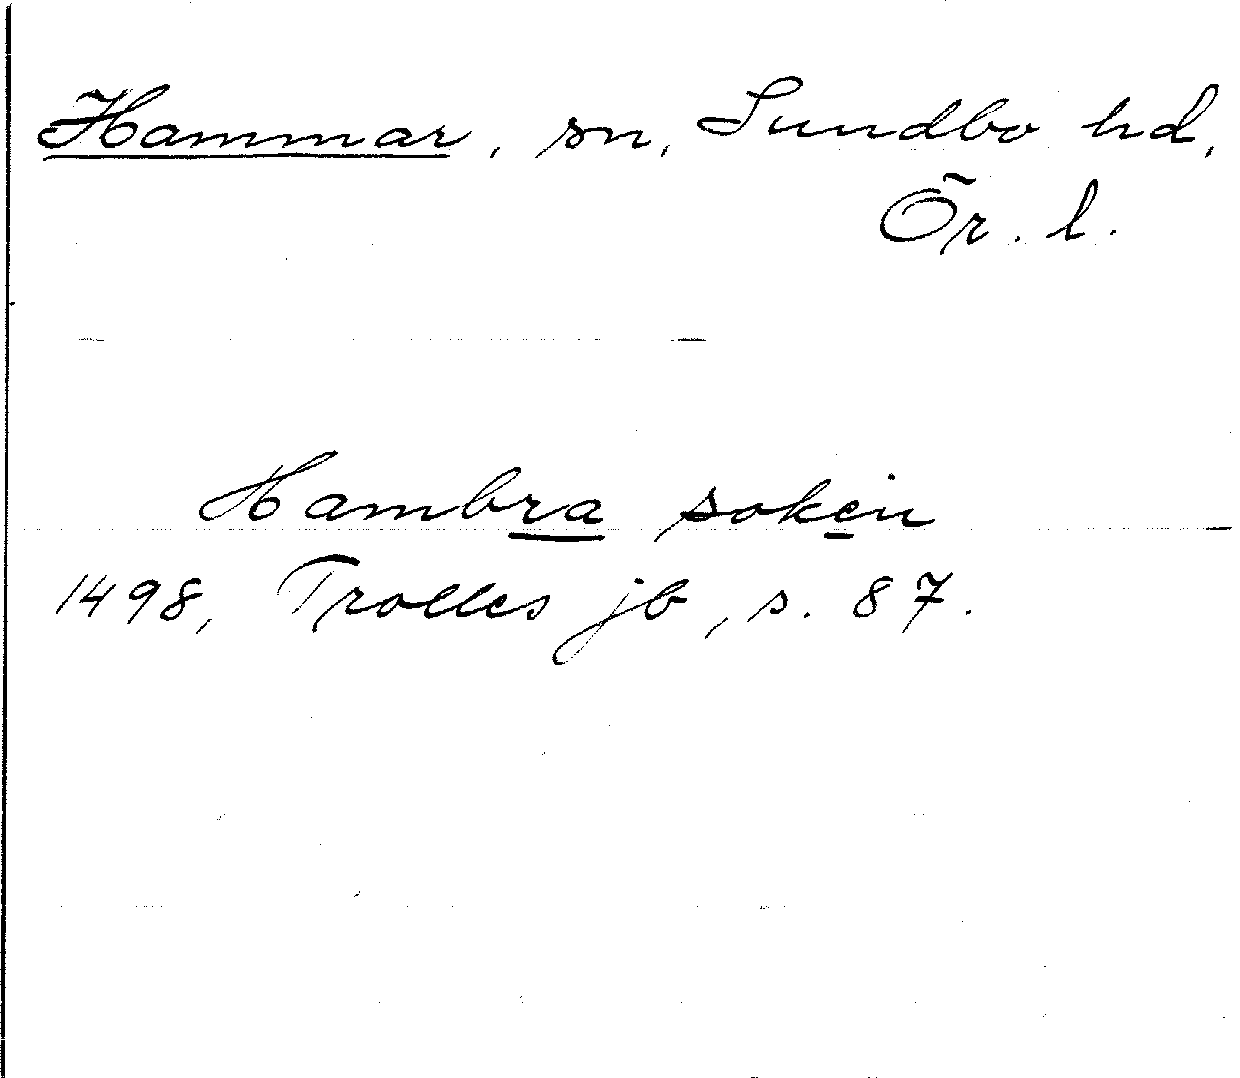 Hammar, sn, Sundbo hd,
Ör. l.
Hambra sokein
1498, Trolles jb, s. 87.